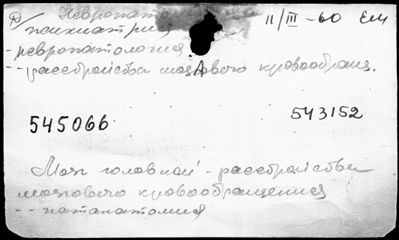 Невропат
психиатрия
11/III-60 Ем
- невропатология
-- расстройства мозгового кровообращ.
545066 543152
Мозг головной - расстройства
мозгового кровообращения
-- патанатомия